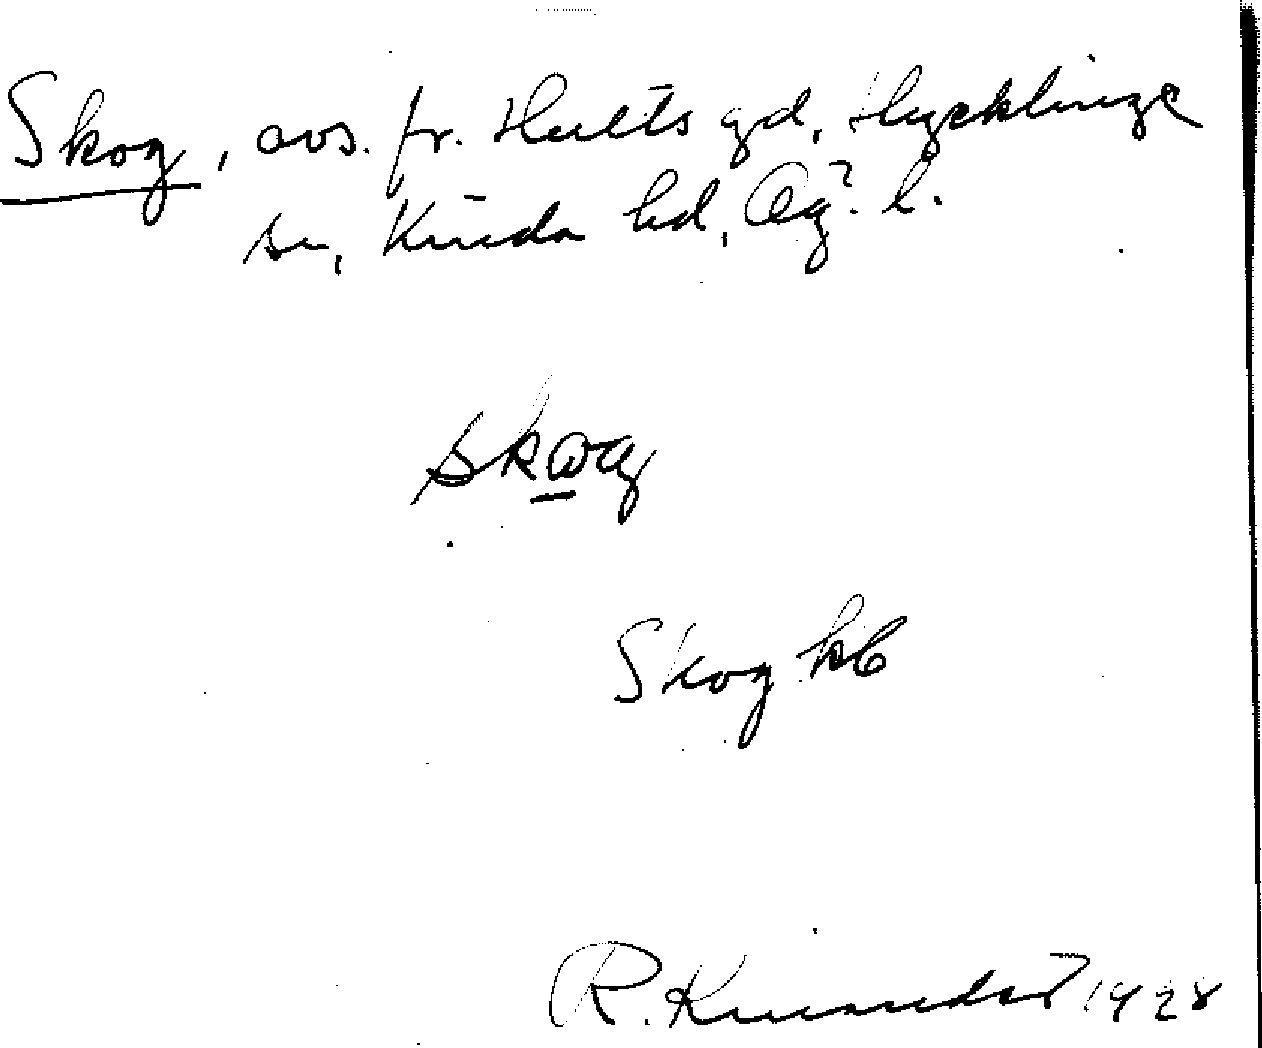 Skog, avs. fr. Hults gd, Hycklinge
sn, Kinda hd, Ög. l.
skωg
Skog kb
R. 1928